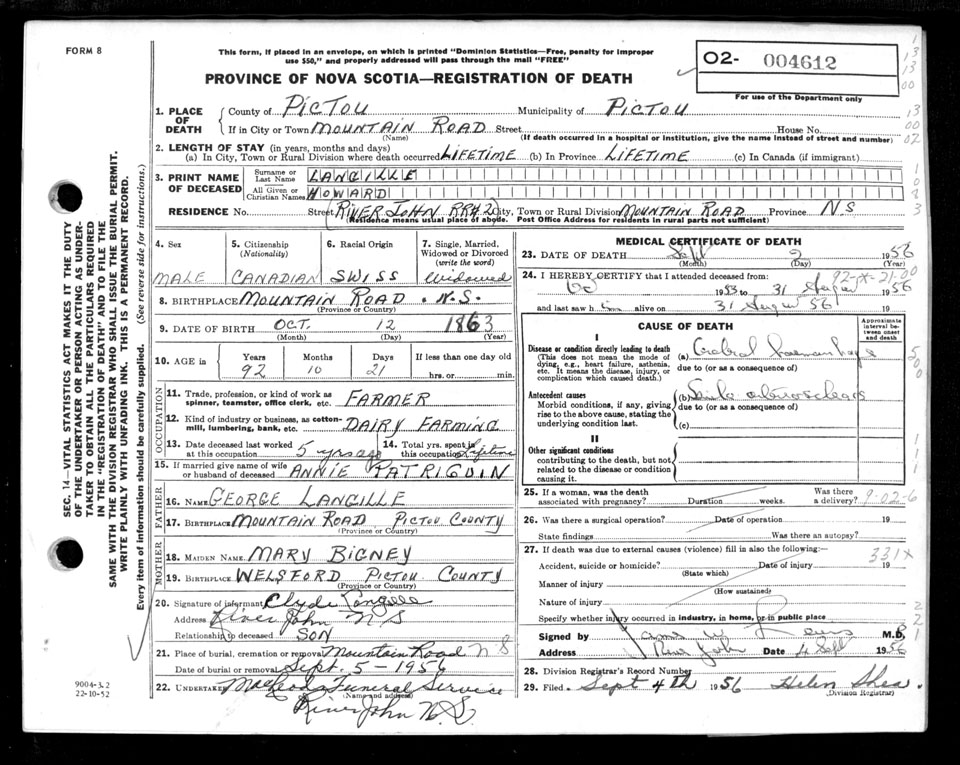 FORM 8
This form, if placed in an envelope, on which is printed "Dominion Statistics—Free, penalty for improper
use $50," and properly addressed will pass through the mail "FREE"
PROVINCE OF NOVA SCOTIA—REGISTRATION OF DEATH
02- 004612
For use of the Department only
SEC. 14—VITAL STATISTICS ACT MAKES IT THE DUTY
OF THE UNDERTAKER OR PERSON ACTING AS UNDER-
TAKER TO OBTAIN ALL THE PARTICULARS REQUIRED
IN THE "REGISTRATION OF DEATH" AND TO FILE THE
SAME WITH THE DIVISION REGISTRAR WHO SHALL ISSUE THE BURIAL PERMIT.
WRITE PLAINLY WITH UNFADING INK. THIS IS A PERMANENT RECORD.
Every item of information should be carefully supplied. (See reverse side for instructions.)
1. PLACE OF DEATH
County of PICTOU Municipality of PICTOU
If in City or Town MOUNTAIN ROAD Street House No.
(Name) (If death occurred in a hospital or institution, give the name instead of street and number)
2. LENGTH OF STAY (in years, months and days)
(a) In City, Town or Rural Division where death occurred LIFETIME (b) In Province LIFETIME (c) In Canada (if immigrant)
3. PRINT NAME OF DECEASED
Surname or Last Name LANGILLE
All Given or Christian Names HOWARD
RESIDENCE No. Street RIVER JOHN RR#2 City, Town or Rural Division MOUNTAIN ROAD Province NS
(Residence means usual place of abode. Post Office Address for residents in rural parts not sufficient)
4. Sex MALE
5. Citizenship (Nationality) CANADIAN
6. Racial Origin SWISS
7. Single, Married, Widowed or Divorced (write the word) Widowed
8. BIRTHPLACE MOUNTAIN ROAD . N.S.
(Province or Country)
9. DATE OF BIRTH OCT. 12 1863
(Month) (Day) (Year)
10. AGE in Years Months Days If less than one day old
92 10 21 hrs. or min.
OCCUPATION
11. Trade, profession, or kind of work as spinner, teamster, office clerk, etc. FARMER
12. Kind of industry or business, as cotton-mill, lumbering, bank, etc. DAIRY FARMING
13. Date deceased last worked at this occupation 5 yrs ago
14. Total yrs. spent in this occupation Lifetime
15. If married give name of wife or husband of deceased ANNIE PATRIQUIN
FATHER
16. NAME GEORGE LANGILLE
17. BIRTHPLACE MOUNTAIN ROAD PICTOU COUNTY
(Province or Country)
MOTHER
18. MAIDEN NAME MARY BIGNEY
19. BIRTHPLACE WELSFORD PICTOU COUNTY
(Province or Country)
20. Signature of informant Clyde Langille
Address River John N S
Relationship to deceased SON
21. Place of burial, cremation or removal Mountain Road N S
Date of burial or removal Sept. 5 - 1956
22. UNDERTAKER MacLeods Funeral Service
(Name and address)
River John N.S
9004-3.2
22-10-52
MEDICAL CERTIFICATE OF DEATH
23. DATE OF DEATH Sept 2 1956
(Month) (Day) (Year)
24. I HEREBY CERTIFY that I attended deceased from:
92-X-21-00
1953 to 31 August 1956
and last saw h alive on 31 August 56 19
CAUSE OF DEATH
Approximate interval between onset and death
I
Disease or condition directly leading to death
(This does not mean the mode of dying, e.g., heart failure, asthenia, etc. It means the disease, injury, or complication which caused death.)
(a) Cerebral haemorrhage
due to (or as a consequence of)
Antecedent causes
Morbid conditions, if any, giving rise to the above cause, stating the underlying condition last.
(b) Senile arteriosclerosis
due to (or as a consequence of)
(c)
II
Other significant conditions
contributing to the death, but not related to the disease or condition causing it.
25. If a woman, was the death associated with pregnancy? Duration weeks. Was there a delivery? 9-02-6
26. Was there a surgical operation? Date of operation 19
State findings Was there an autopsy?
27. If death was due to external causes (violence) fill in also the following:— 331X
Accident, suicide or homicide? Date of injury 19
(State which)
Manner of injury
(How sustained)
Nature of injury
Specify whether injury occurred in industry, in home, or in public place
Signed by James W. M.D.
Address River John Date 4 Sept 1956
28. Division Registrar's Record Number
29. Filed Sept 4th 1956 Helen Shea
(Division Registrar)